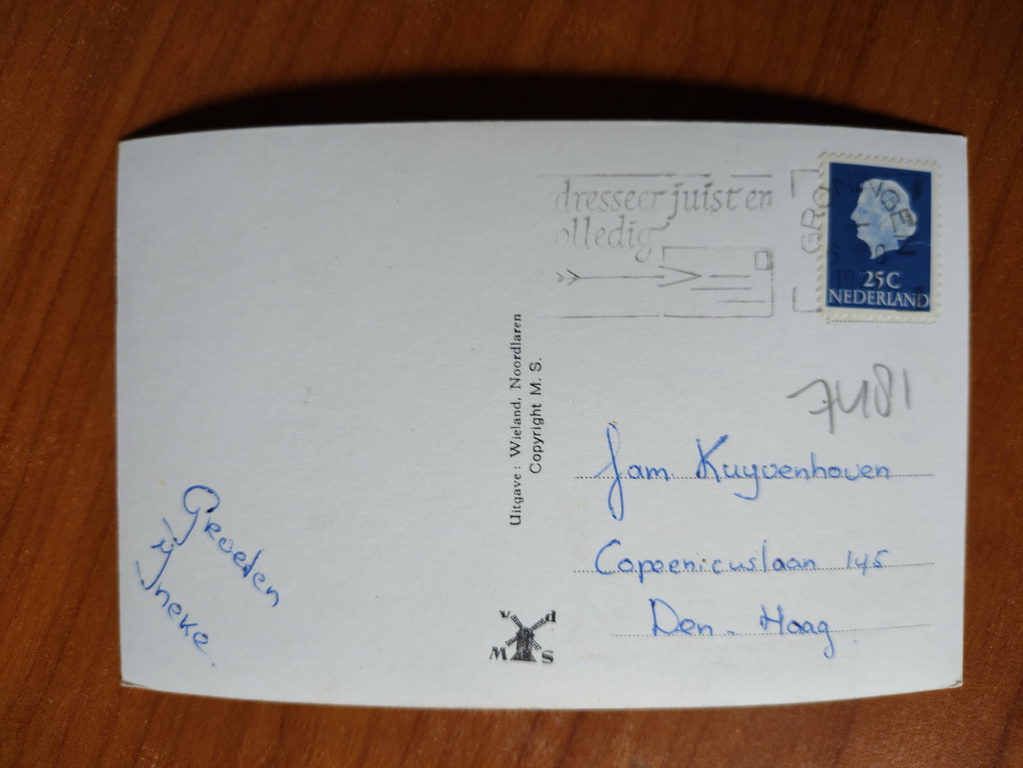 dresseer juist en
olledig
GRONINGEN
25C
NEDERLAND
7481
Uitgave: Wieland, Noordlaren
Copyright M. S.
Fam. Kuyvenhoven
Copernicuslaan 145
Den. Haag
Groeten
Ineke.
v d
M S